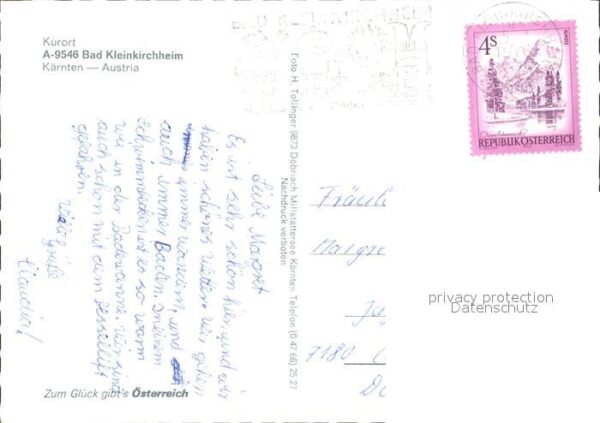 Kurort
A-9546 Bad Kleinkirchheim
Kärnten — Austria
Liebe Margret
Es ist sehr schön hier, und wir
haben schönes Wetter. Wir gehen
immer wandern, und
auch immer Baden. In einem
Schwimmbad ist es so warm
wie in der Badewanne. Wir sind
auch schon mit dem Sessellift
gefahren.
Viele
Grüße
Claudia!
Zum Glück gibt's Österreich
Foto H. Tollinger 9873 Döbriach Millstättersee Kärnten Telefon (0 47 66) 25 27
Nachdruck verboten
4S
ALMSEE
REPUBLIK ÖSTERREICH
Fräulei
Margre
7180
privacy protection
Datenschutz